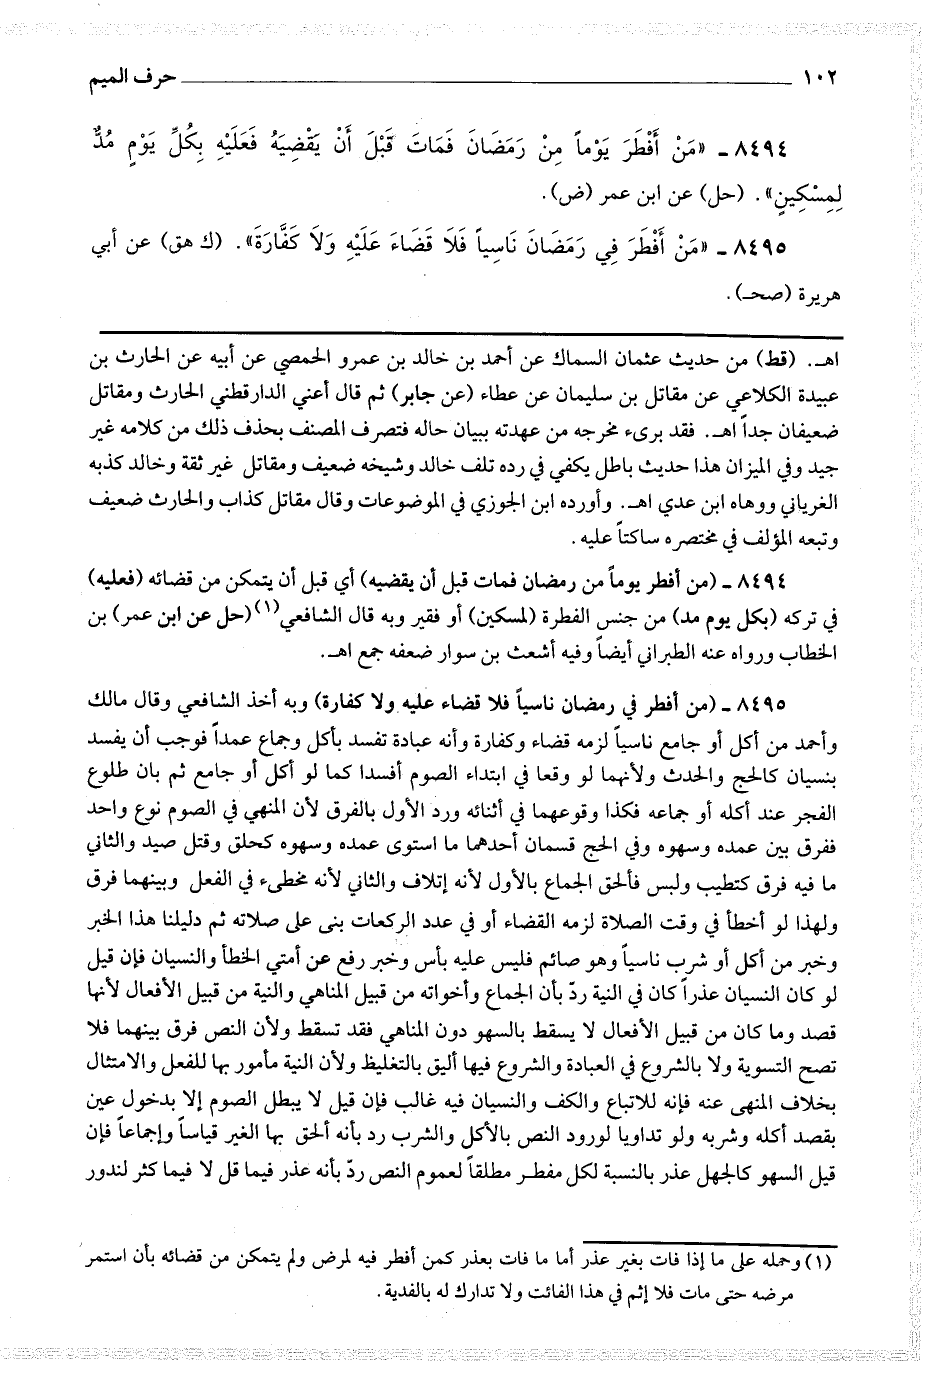 ١٠٢ ــــــــــــــــــــ حرف الميم
٨٤٩٤ ـ «مَنْ أَفْطَرَ يَوْماً مِنْ رَمَضَانَ فَمَاتَ قَبْلَ أَنْ يَقْضِيَهُ فَعَلَيْهِ بِكُلِّ يَوْمٍ مُدٌّ
لِمِسْكِينٍ». (حل) عن ابن عمر (ض).
٨٤٩٥ ـ «مَنْ أَفْطَرَ فِي رَمَضَانَ نَاسِياً فَلَا قَضَاءَ عَلَيْهِ وَلَا كَفَّارَةَ». (ك هق) عن أبي
هريرة (صحـ).
اهـ. (قط) من حديث عثمان السماك عن أحمد بن خالد بن عمرو الحمصي عن أبيه عن الحارث بن
عبيدة الكلاعي عن مقاتل بن سليمان عن عطاء (عن جابر) ثم قال أعني الدارقطني الحارث ومقاتل
ضعيفان جداً اهـ. فقد برىء مخرجه من عهدته ببيان حاله فتصرف المصنف بحذف ذلك من كلامه غير
جيد وفي الميزان هذا حديث باطل يكفي في رده تلف خالد وشيخه ضعيف ومقاتل غير ثقة وخالد كذبه
الغرياني ووهاه ابن عدي اهـ. وأورده ابن الجوزي في الموضوعات وقال مقاتل كذاب والحارث ضعيف
وتبعه المؤلف في مختصره ساكتاً عليه.
٨٤٩٤ ـ (من أفطر يوماً من رمضان فمات قبل أن يقضيه) أي قبل أن يتمكن من قضائه (فعليه)
في تركه (بكل يوم مد) من جنس الفطرة (لمسكين) أو فقير وبه قال الشافعي(١)(حل عن ابن عمر) بن
الخطاب ورواه عنه الطبراني أيضاً وفيه أشعث بن سوار ضعفه جمع اهـ.
٨٤٩٥ ـ (من أفطر في رمضان ناسياً فلا قضاء عليه ولا كفارة) وبه أخذ الشافعي وقال مالك
وأحمد من أكل أو جامع ناسياً لزمه قضاء وكفارة وأنه عبادة تفسد بأكل وجماع عمداً فوجب أن يفسد
بنسيان كالحج والحدث ولأنهما لو وقعا في ابتداء الصوم أفسدا كما لو أكل أو جامع ثم بان طلوع
الفجر عند أكله أو جماعه فكذا وقوعهما في أثنائه ورد الأول بالفرق لأن المنهي في الصوم نوع واحد
ففرق بين عمده وسهوه وفي الحج قسمان أحدهما ما استوى عمده وسهوه كحلق وقتل صيد والثاني
ما فيه فرق كتطيب ولبس فألحق الجماع بالأول لأنه إتلاف والثاني لأنه مخطىء في الفعل وبينهما فرق
ولهذا لو أخطأ في وقت الصلاة لزمه القضاء أو في عدد الركعات بنى على صلاته ثم دليلنا هذا الخبر
وخبر من أكل أو شرب ناسياً وهو صائم فليس عليه بأس وخبر رفع عن أمتي الخطأ والنسيان فإن قيل
لو كان النسيان عذراً كان في النية ردّ بأن الجماع وأخواته من قبيل المناهي والنية من قبيل الأفعال لأنها
قصد وما كان من قبيل الأفعال لا يسقط بالسهو دون المناهي فقد تسقط ولأن النص فرق بينهما فلا
تصح التسوية ولا بالشروع في العبادة والشروع فيها أليق بالتغليظ ولأن النية مأمور بها للفعل والامتثال
بخلاف المنهى عنه فإنه للاتباع والكف والنسيان فيه غالب فإن قيل لا يبطل الصوم إلا بدخول عين
بقصد أكله وشربه ولو تداويا لورود النص بالأكل والشرب رد بأنه ألحق بها الغير قياساً وإجماعاً فإن
قيل السهو كالجهل عذر بالنسبة لكل مفطر مطلقاً لعموم النص ردّ بأنه عذر فيما قل لا فيما كثر لندور
(١) وحمله على ما إذا فات بغير عذر أما ما فات بعذر كمن أفطر فيه لمرض ولم يتمكن من قضائه بأن استمر
مرضه حتى مات فلا إثم في هذا الفائت ولا تدارك له بالفدية.